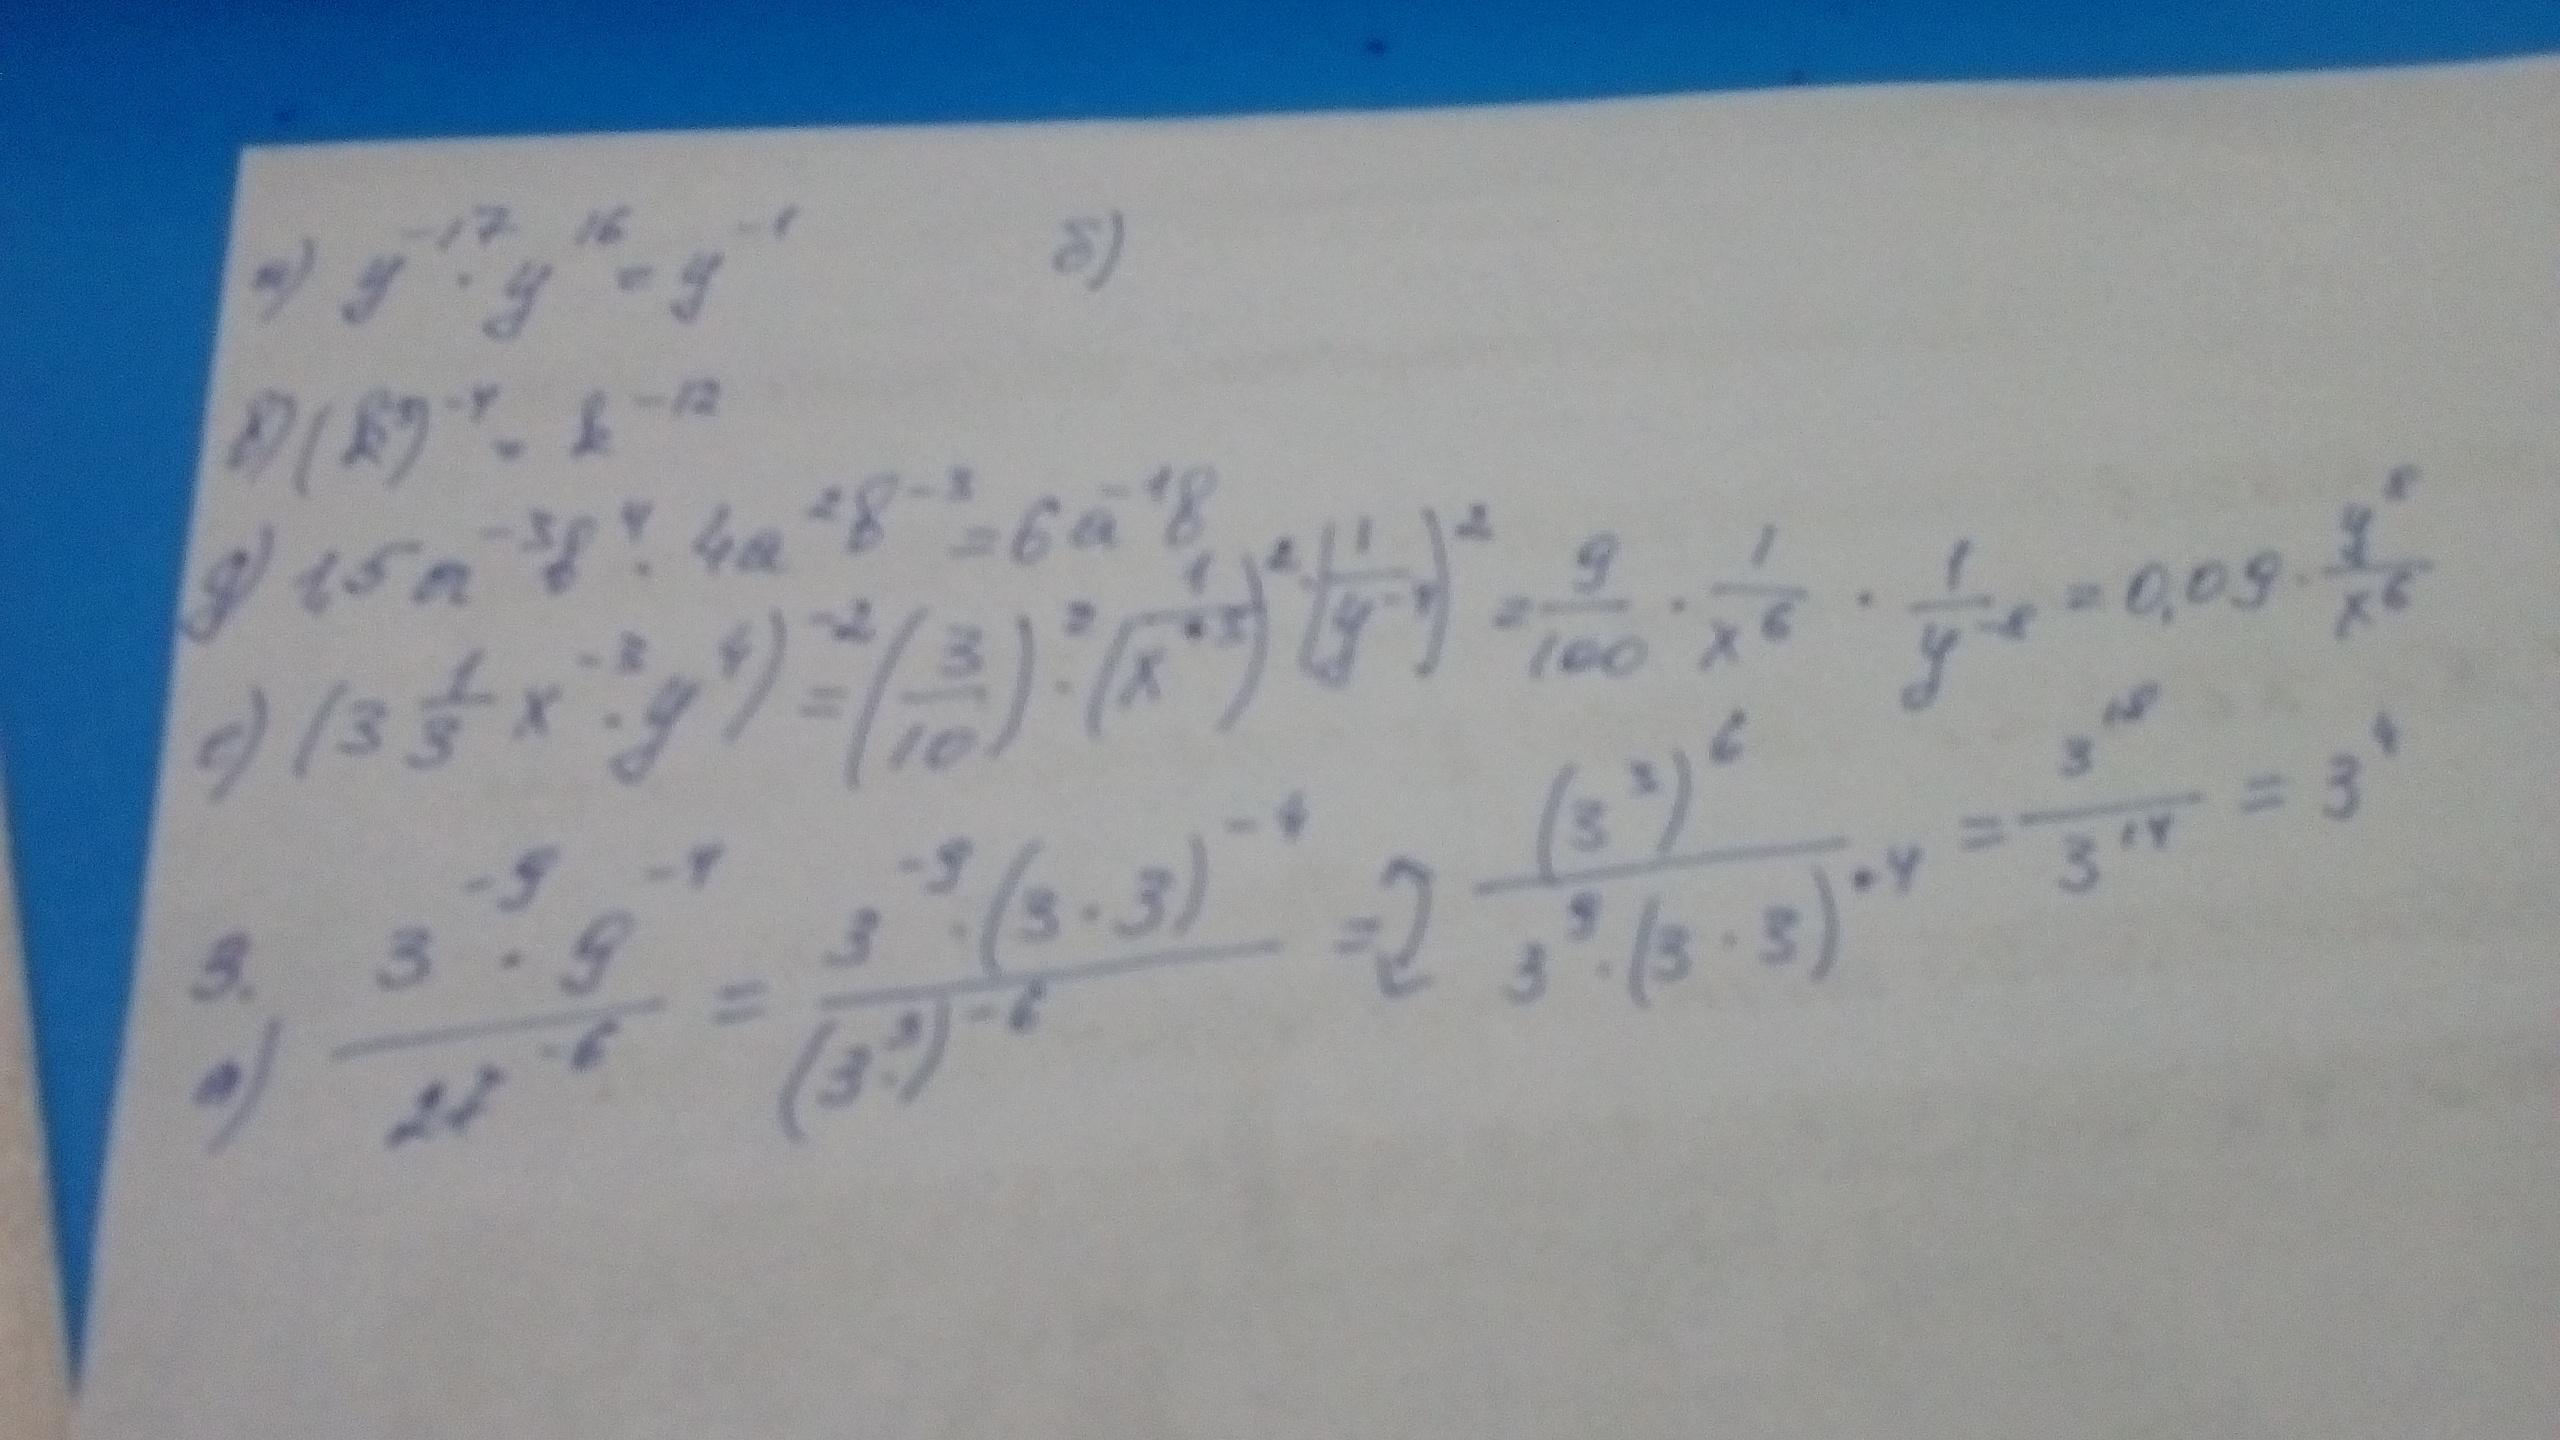 а) y⁻¹⁷ · y¹⁶ = y⁻¹ б)
в) (k³)⁻⁴ = k⁻¹²
д) 1,5a⁻³b⁴ · 4a²b⁻³ = 6a⁻¹b
е) (3 1/3 x⁻³ · y⁴)⁻² = (3/10)² · (1/x⁺³)² · (1/y⁻⁴)² = 9/100 · 1/x⁶ · 1/y⁻⁸ = 0,09 · y⁸/x⁶
3.
а) 3⁻⁹ · 9⁻⁴ / 27⁻⁶ = 3⁻⁹ · (3 · 3)⁻⁴ / (3³)⁻⁶ = (3³)⁶ / 3⁹ · (3 · 3)⁺⁴ = 3¹⁸ / 3¹⁴ = 3⁴